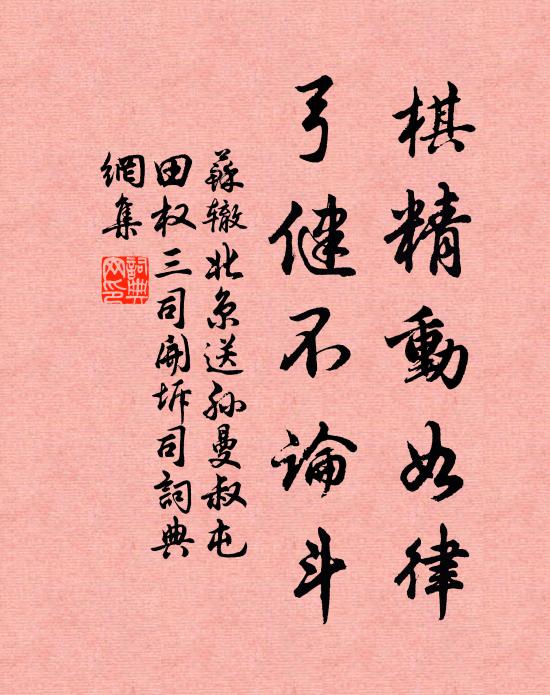 棋精動如律
弓健不論斗
蘇辙北京送孙曼叔屯
田权三司開坼司詞典
網集
詞典
网印